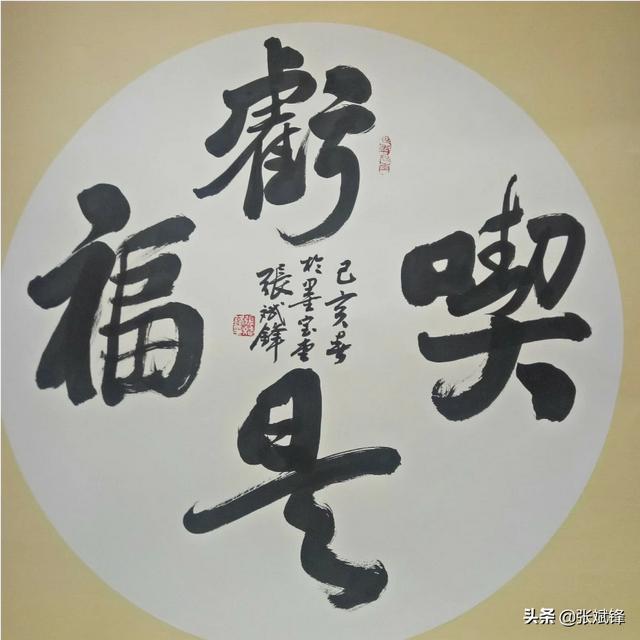 喫
虧
是
福
己亥春
於墨宝堂
張斌鋒
头条 @张斌锋